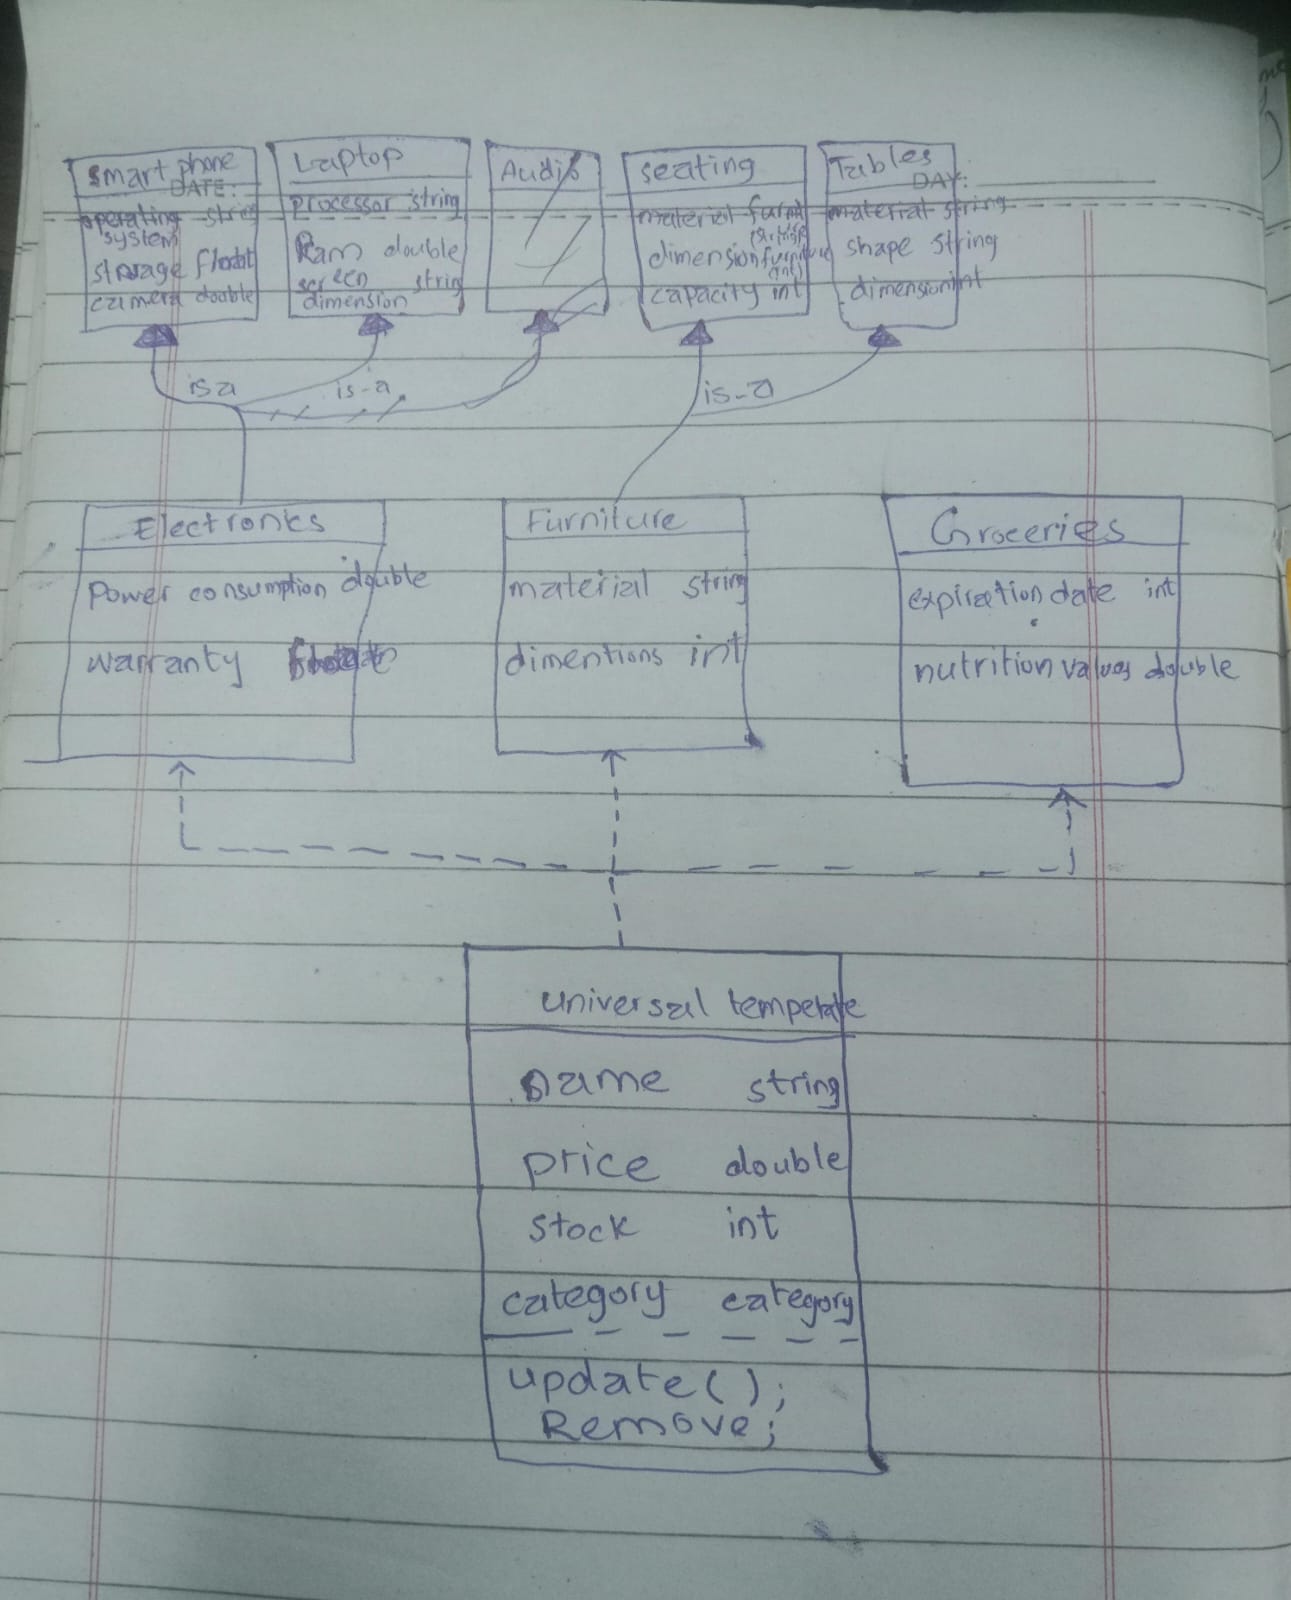 Smart phone
DATE:
operating string
system
storage
camera double
Laptop
processor string
Ram double
screen string
dimension
Audio
seating
material
dimension furniture
(int)
capacity int
Tables
DAY:
material string
shape string
dimension int
is a
is-a
is-a
Electronics
Power consumption double
warranty
Furniture
material string
dimentions int
Groceries
expiration date int
nutrition values double
universal temperate
name string
price double
stock int
category category
update();
Remove;